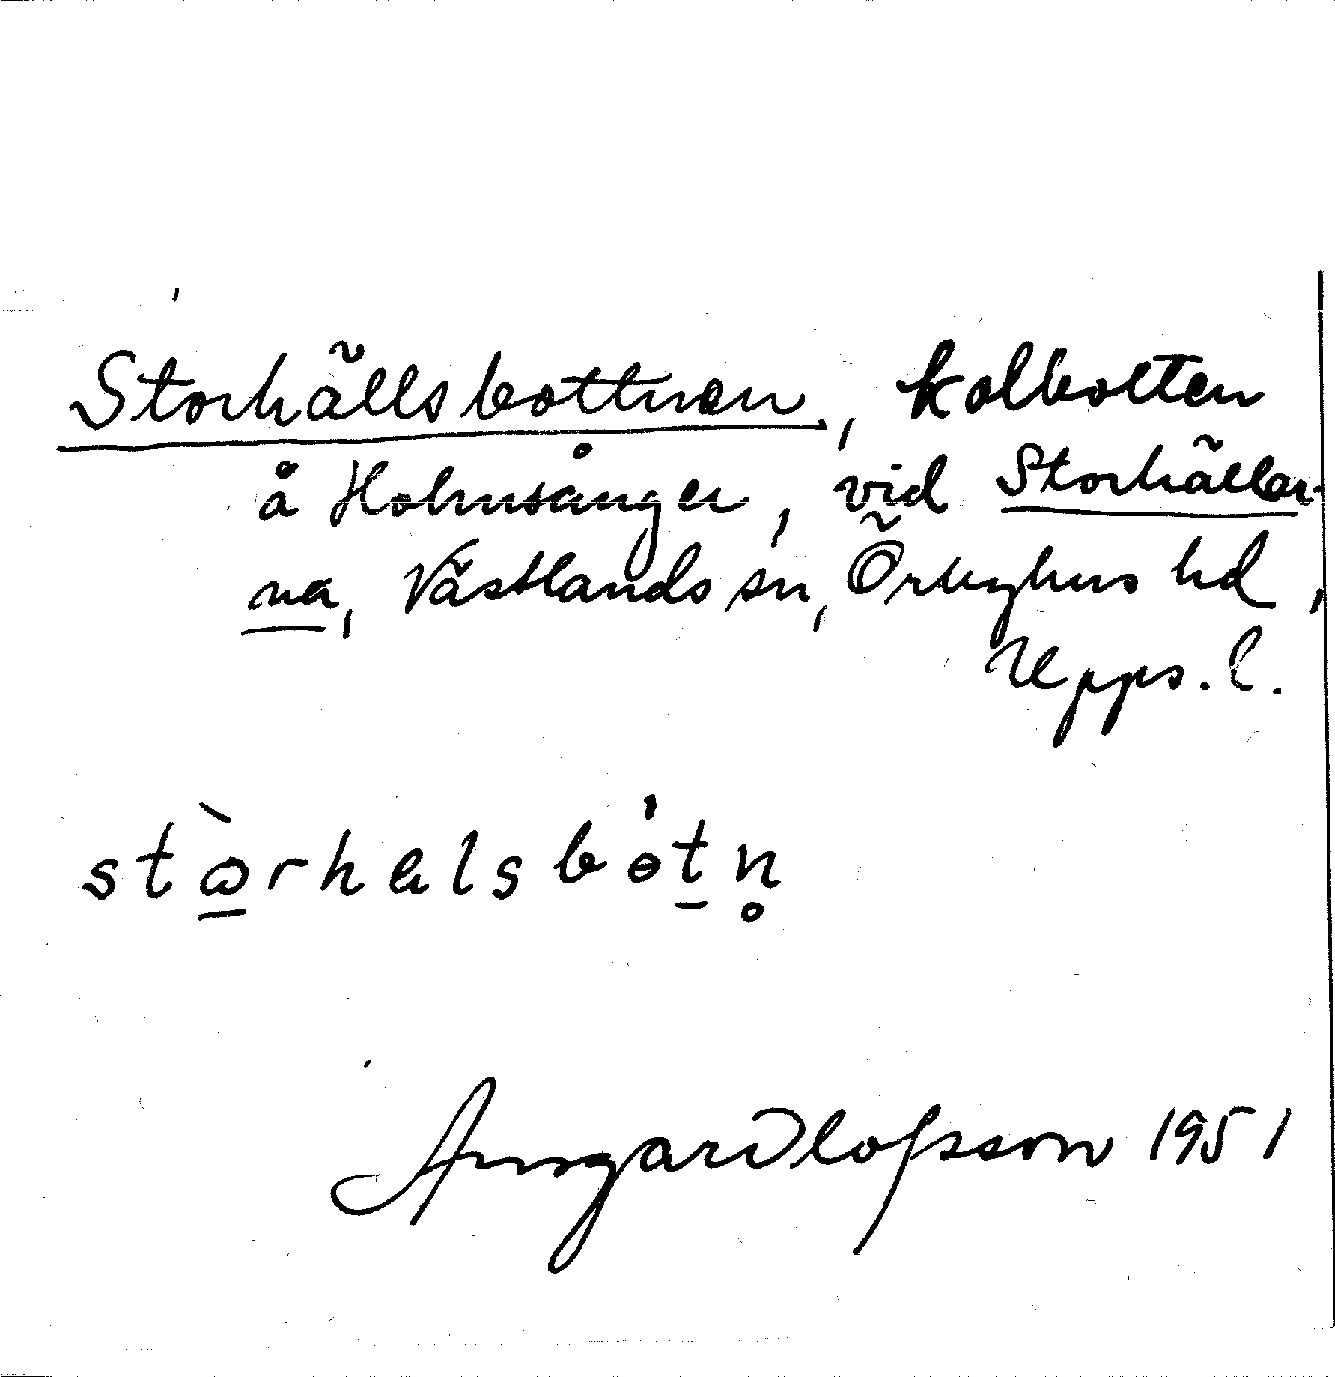 Storhällsbottnen, kolbotten
å Holmsånger, vid Storhällar-
na, Västlands sn, Örbyhus hd,
Upps. l.
stɷ̀rhalsbȯtn̥
Amgard Olofsson 1951